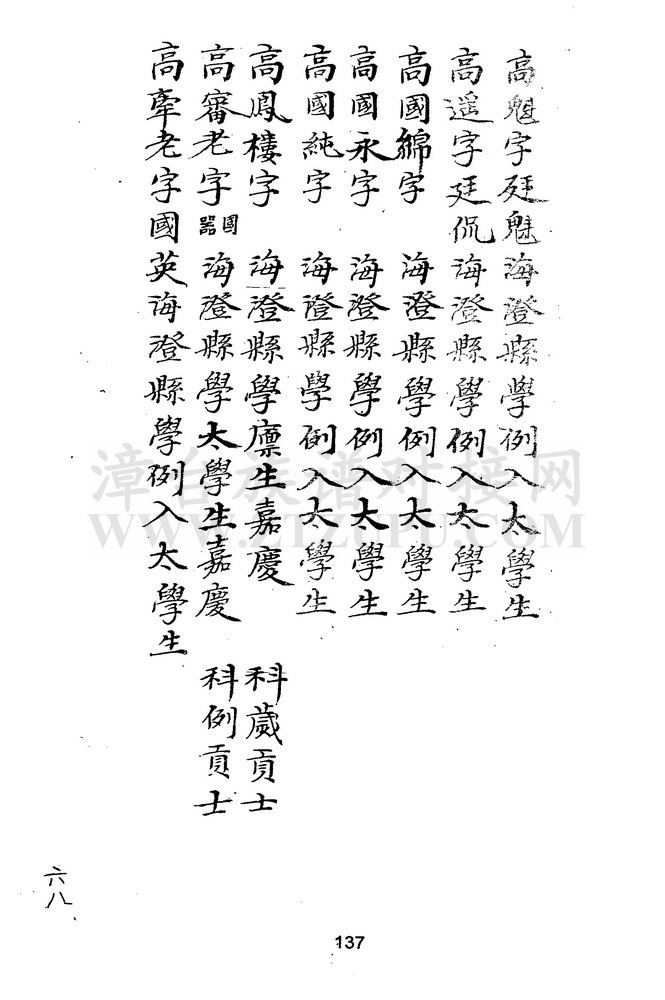 高魁字廷魁海澄縣學例入太學生
高遥字廷侃海澄縣學例入太學生
高國綿字 海澄縣學例入太學生
高國永字 海澄縣學例入太學生
高國純字 海澄縣學例入太學生
高鳳樓字 海澄縣學廪生嘉慶 科歲貢士
高審老字國器 海澄縣學太學生嘉慶 科例貢士
高牽老字國英海澄縣學例入太學生
六八
漳台族谱对接网
WWW.ZTZUPU.COM
137